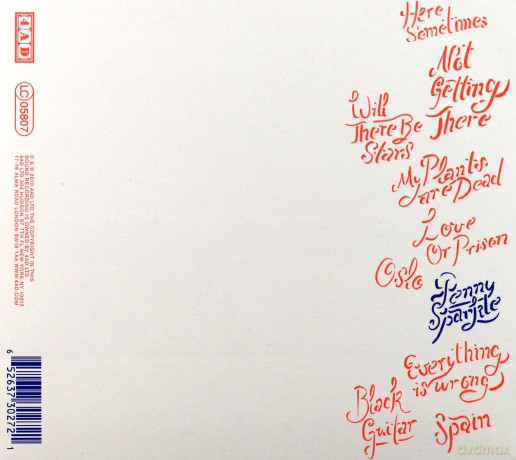 4AD
LC 05807
℗ & © 2010 4AD LTD THE COPYRIGHT IN THIS
SOUND RECORDING IS OWNED BY 4AD LTD
4AD LTD, 304 HUDSON ST, 7TH FL, NEW YORK, NY 10013
17-19 ALMA ROAD LONDON SW18 1AA WWW.4AD.COM
6 52637 30272 1
Here
Sometimes
Not
Getting
There
Will
There Be
Stars
My Plants
are Dead
Love
Or Prison
Oslo
Penny
Sparkle
Everything
is wrong
Black
Guitar
Spain
avdmax